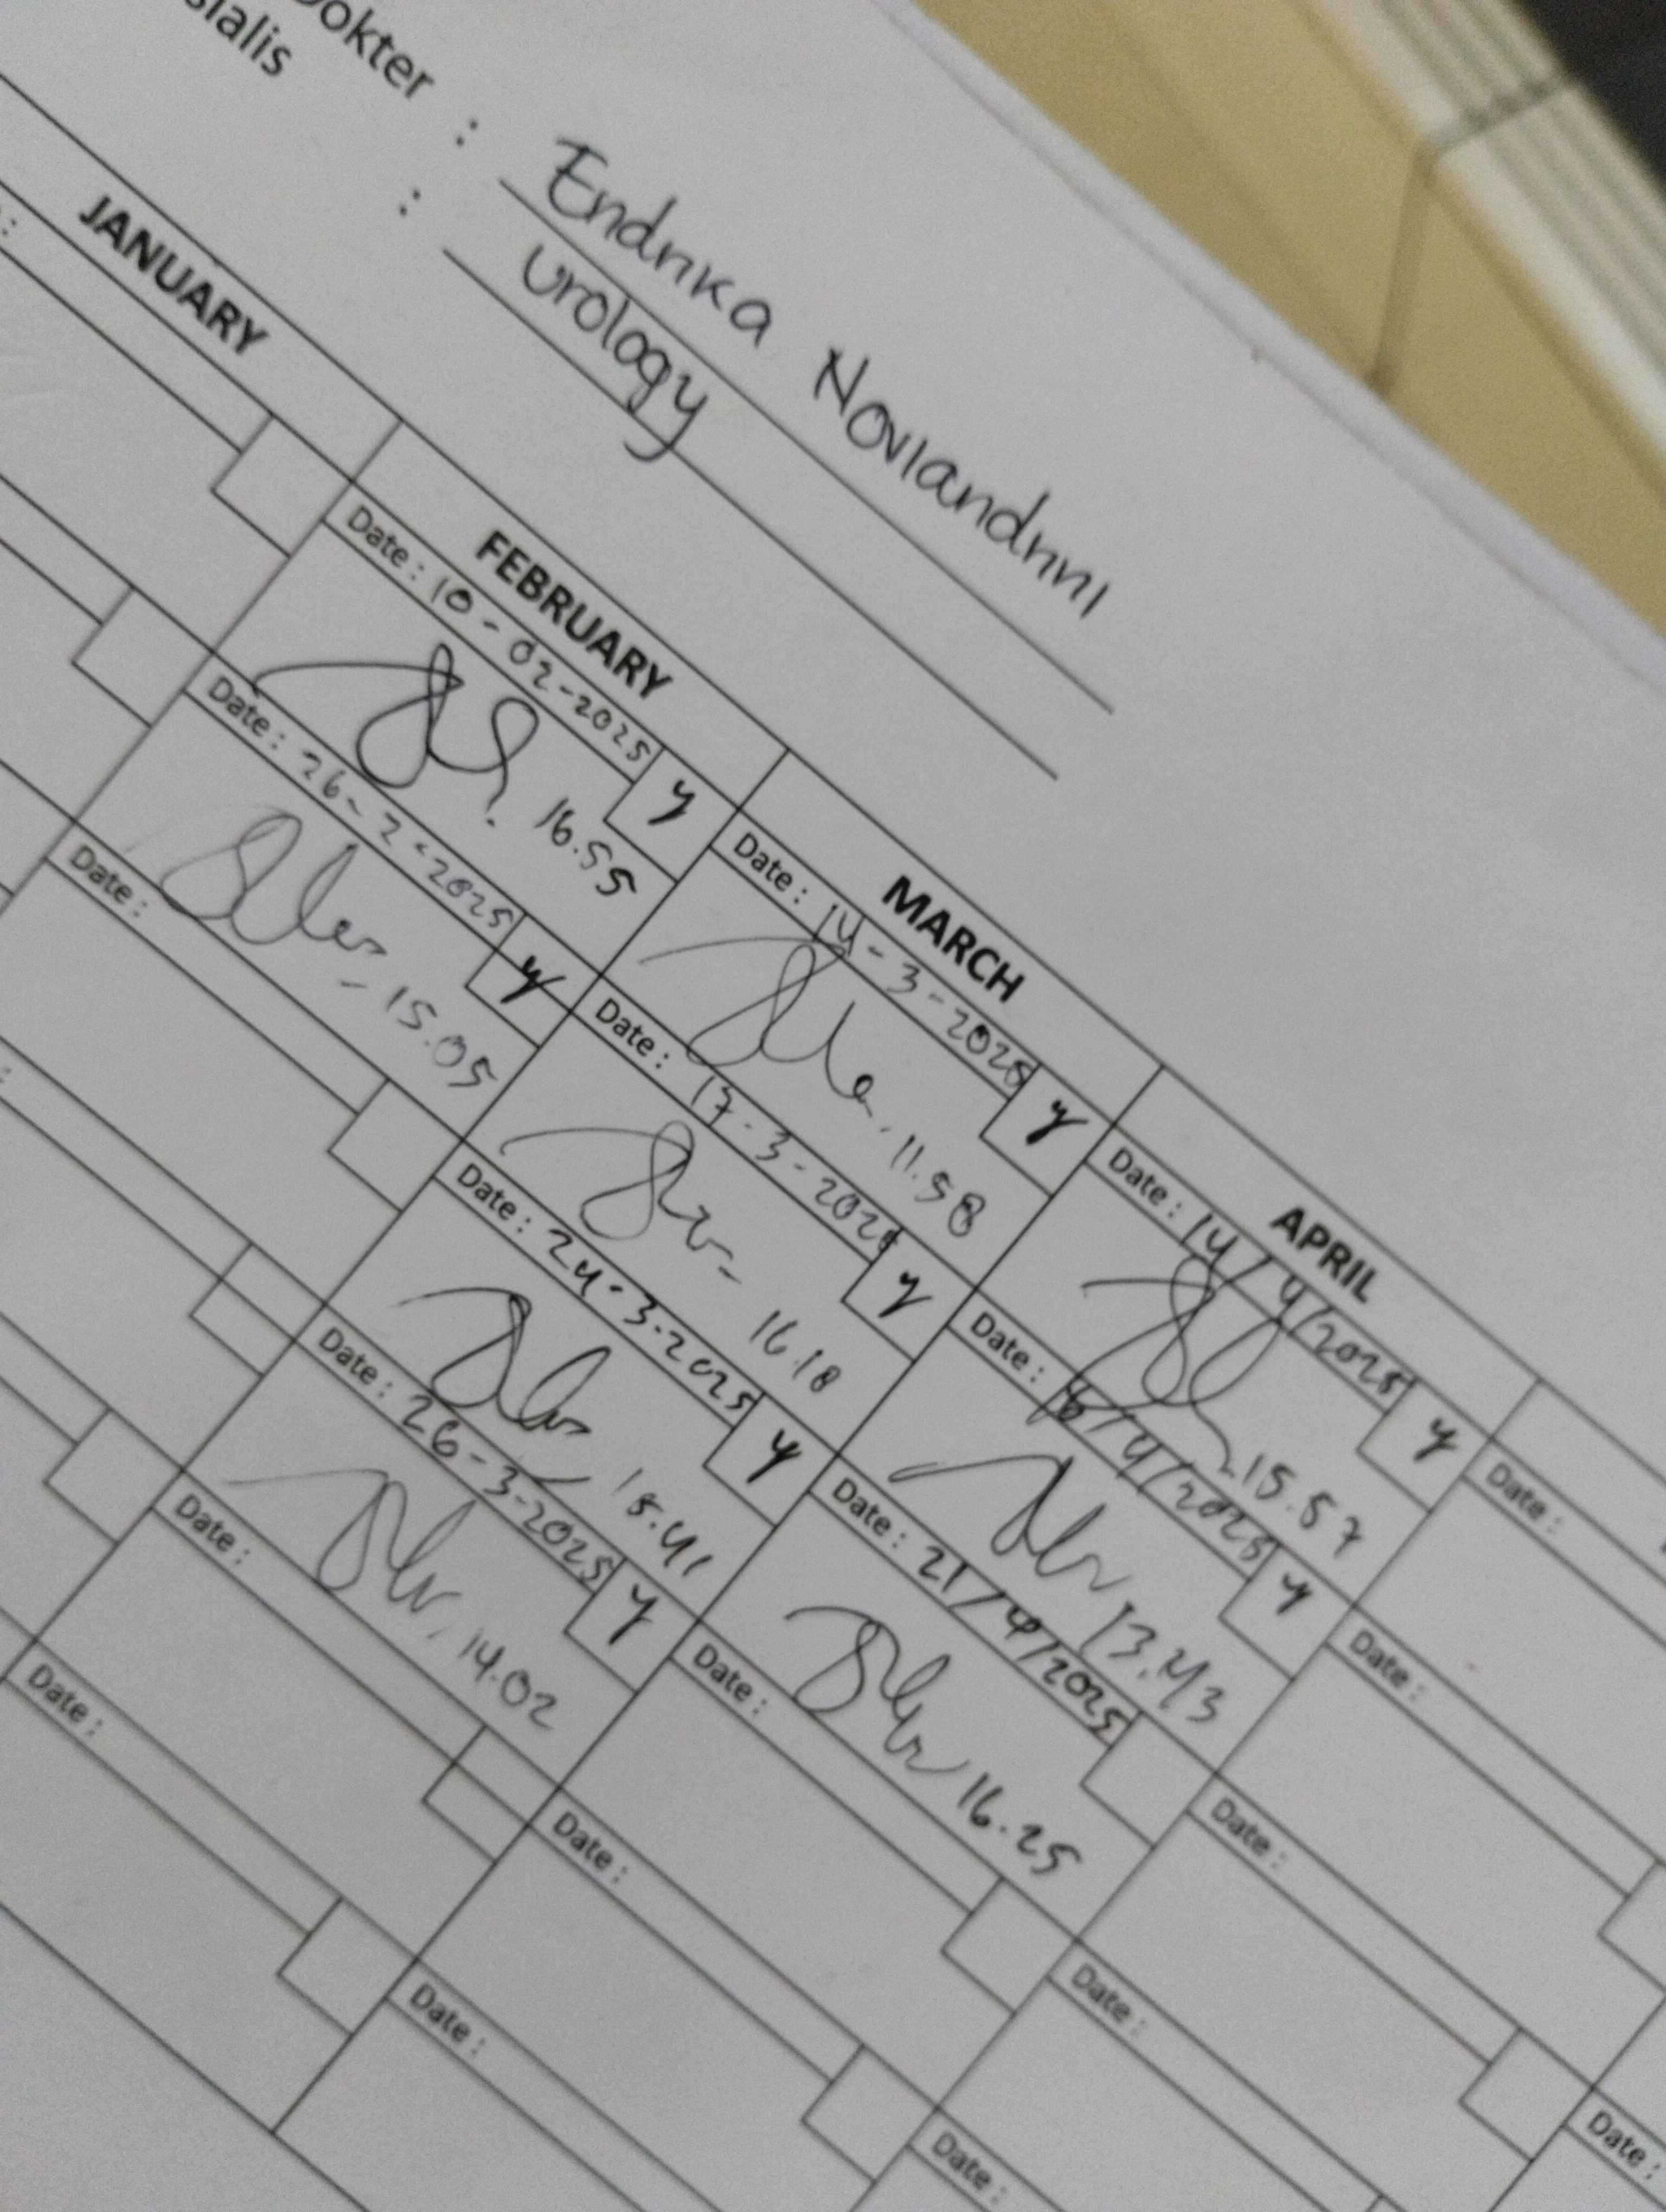 okter : Endrika Noviandrini
sialis : Urology
JANUARY
FEBRUARY
MARCH
APRIL
Date : 10-02-2025 y
16.55
Date : 26-2-2025 y
15.05
Date :
Date : 14-3-2025 y
11.58
Date : 17-3-2025 y
16.18
Date : 24-3-2025 y
15.41
Date : 26-3-2025 y
14.02
Date :
Date :
Date : 14/4/2025 y
15.57
Date : 16/4/2025 y
13.43
Date : 21/4/2025
16.25
Date :
Date :
Date :
Date :
Date :
Date :
Date :
Date :
Date :